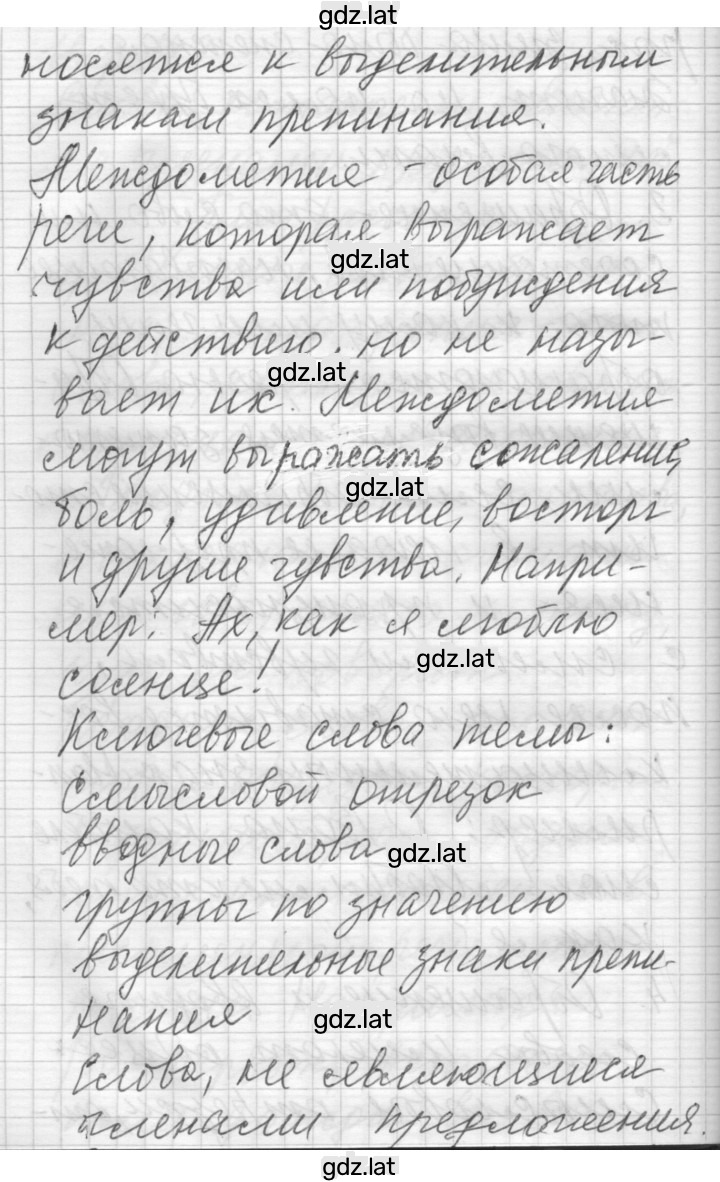 gdz.lat
носятся к выделительным
знакам препинания.
Междометия - особая часть
речи, которая выражает
gdz.lat
чувства или побуждения
к действию, но не назы-
gdz.lat
вает их. Междометия
могут выражать сожаление,
gdz.lat
боль, удивление, восторг
и другие чувства. Напри-
мер: Ах, как я люблю
gdz.lat
солнце!
Ключевые слова темы:
Смысловой отрезок
вводные слова gdz.lat
группы по значению
выделительные знаки препи-
нания gdz.lat
Слова, не являющиеся
членами предложения.
gdz.lat